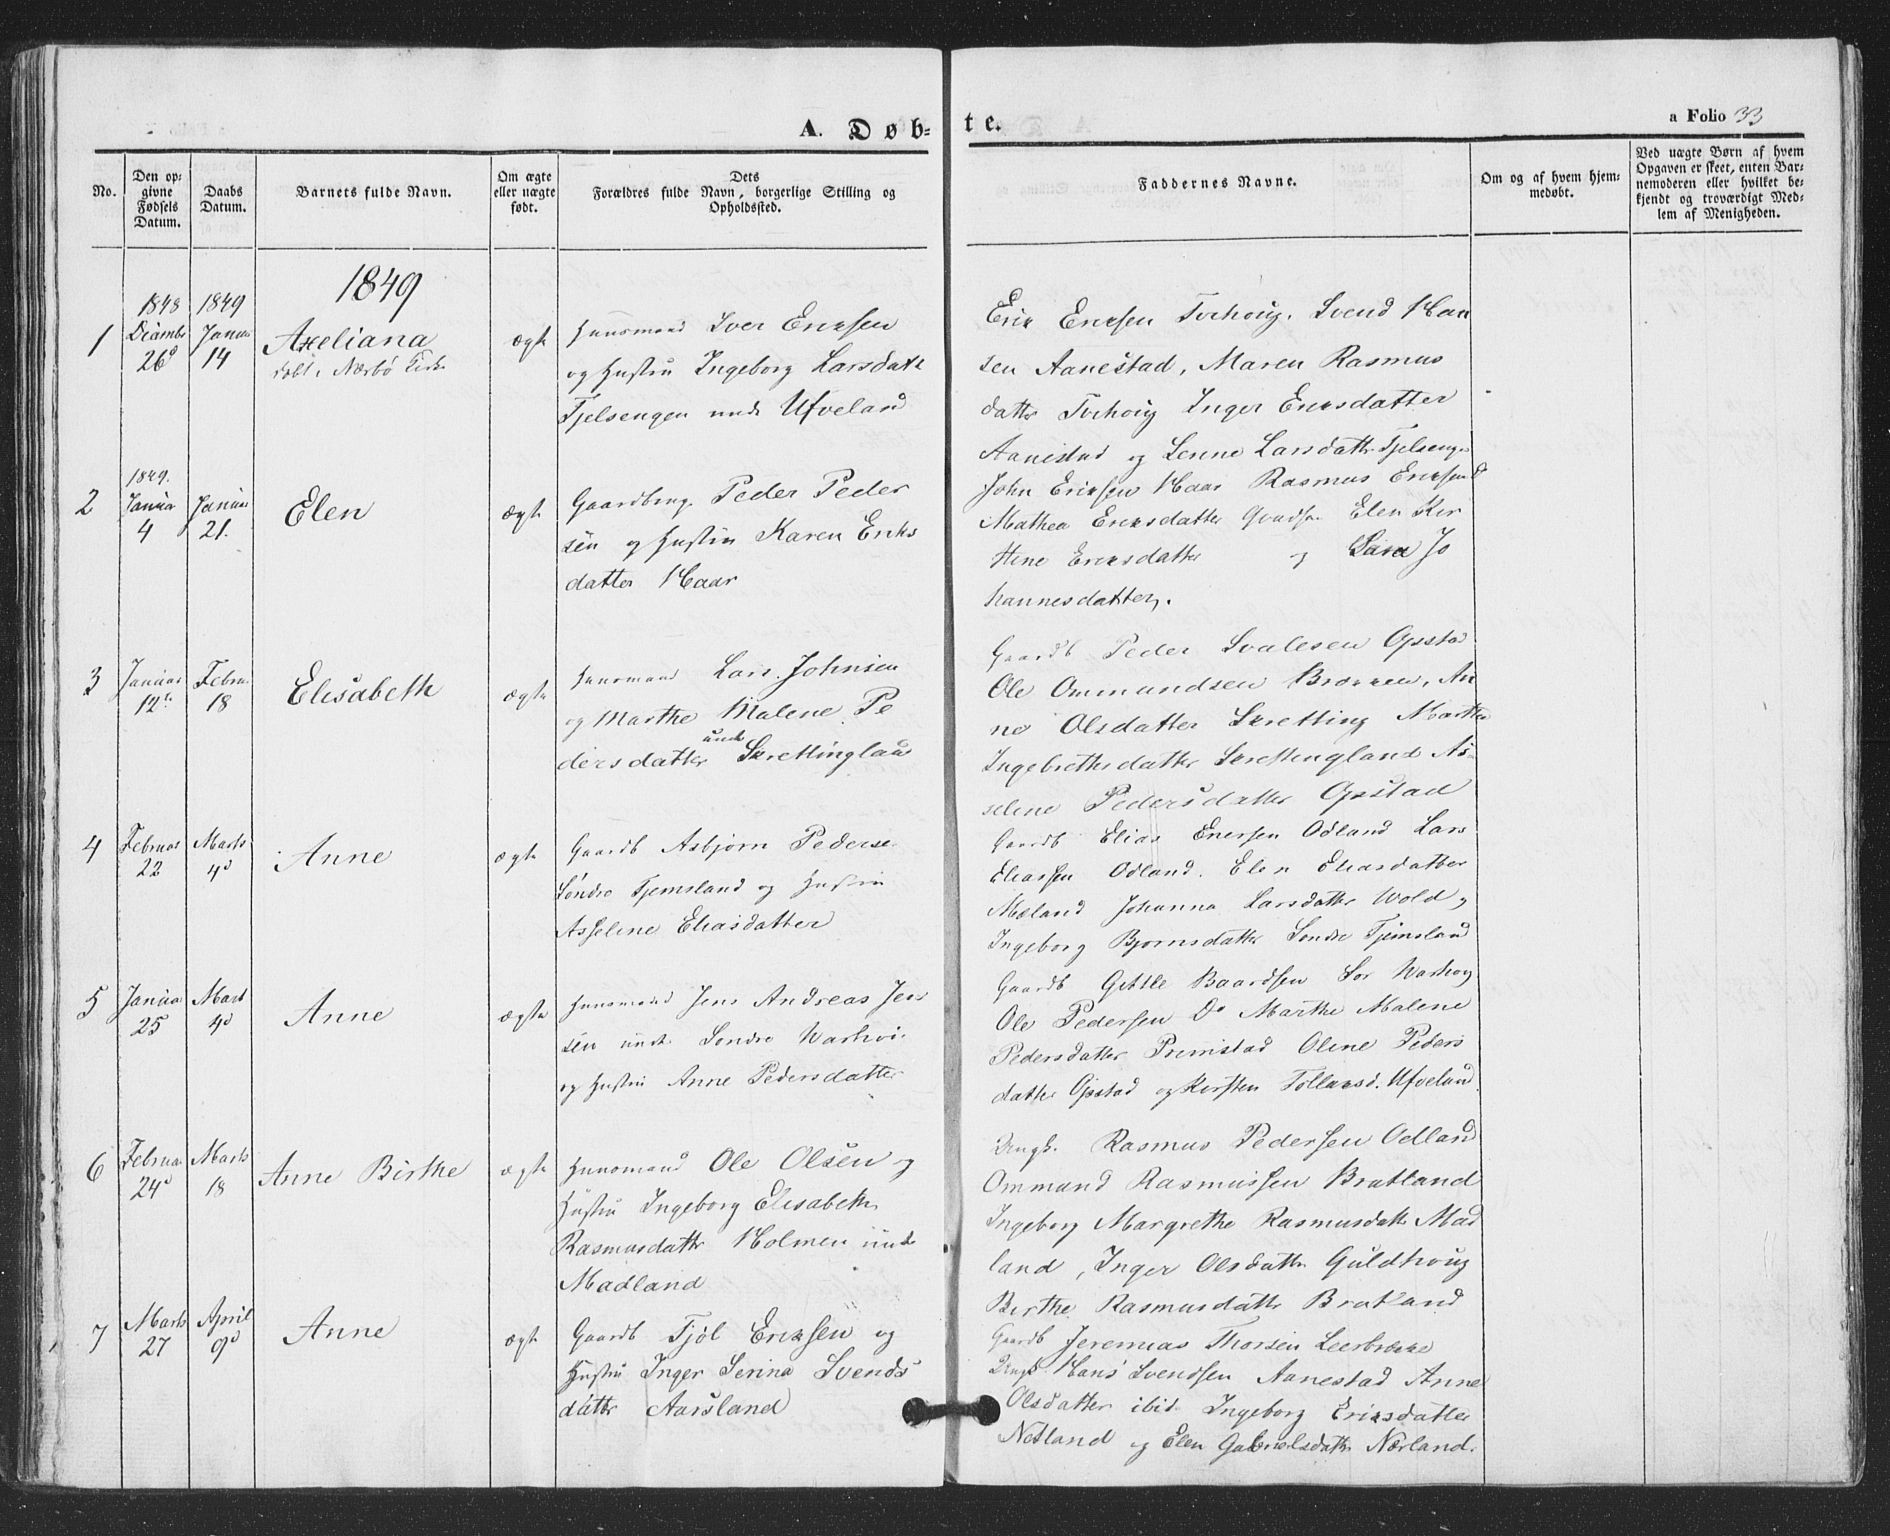 A. Døb-
te.
a Folio 33
No.
Den op-
givne
Fødsels
Datum.
Daabs
Datum.
Barnets fulde Navn.
Om ægte
eller uægte
født.
Dets
Forældres fulde Navn, borgerlige Stilling og
Opholdssted.
Faddernes Navne.
Om og af hvem hjem-
medøbt.
Ved uægte Børn af hvem
Opgaven er skeet, enten Bar-
nemoderen eller hvilket be-
kjendt og troværdigt Med-
lem af Menigheden.
1849
1
1848
26
1849
Januar
14
Axeliana
døbt i Nærbø Kirke
ægte
Huusmand Iver Eriksen
og Hustru Ingeborg Larsdatt
Fjelsengen unde Ufveland
Erik Eriksen Tvihoug. Svend Han
sen Aanestad, Maren Rasmus
datter Tvihoug Inger Eriksdatter
Aanestad og Lenne Larsdatter
2
1849.
Januar
4
Januar
21.
Elen
ægte
Gaardbrug. Peder Peder
sen og Hustru Karen Eriks
datter Haar
John Eriksen Haar Rasmus Eriksen
Mathea Eriksdatter Elen Kir
stine Eriksdatter og Sara Jo
hannesdatter.
3
Januar
12
Februar
18
Elisabeth
ægte
Huusmand Lars Johnsen
og Marthe Malene Pe
dersdatter unde Skrettinglan
Gaardb Peder Svalesen Opstad
Ole Ommundsen An
ne Olsdatter Skretting Marthe
Ingebrethsdatter Skrettingland As
selene Pedersdatter Opstad
4
Februar
22
Marts
4
Anne
ægte
Gaardb Asbjørn Pederse
Søndre Tjemsland og Hustru
Asselene Eliasdatter
Gaardb Elias Odland Lars
Eliassen Odland. Elen Eliasdatter
Mæland Johanna Larsdatter Wold og
Ingeborg Bjørnsdatter Søndre Tjemsland
5
Januar
25
Marts
4
Anne
ægte
Huusmand Jens Andreas Jen
sen unde Søndre Warhoi
og Hustru Anne Pedersdatter
Gaardb Gittle Baardsen Sør Warhoug
Ole Pedersen Do Marthe Malene
Pedersdatter Primstad Oline Peders
datter Opstad og Kirsten Tollaksd. Ufveland
6
Februar
24
Marts
18
Anne Birthe
ægte
Huusmand Ole Olsen og
Hustru Ingeborg Elisabeth
Rasmusdatter Holmen unde
Madland
Ungk. Rasmus Pedersen Odland
Ommund Rasmussen Bratland
Ingeborg Margrethe Rasmusdatt Mad
land, Inger Olsdatter Guldhoug
Birthe Rasmusdatter Bratland
7
Marts
27
April
9
Anne
ægte
Gaardb Tjøl Eriksen og
Hustru Inger Serina Svends
datter Aarsland
Gaardb Jeremias Thorsen Leerbrekke
Ungk Hans Svendsen Aanestad Anne
Olsdatter ibid. Ingeborg Eriksdatter
Netland og Elen Gabrielsdatter Nærland.